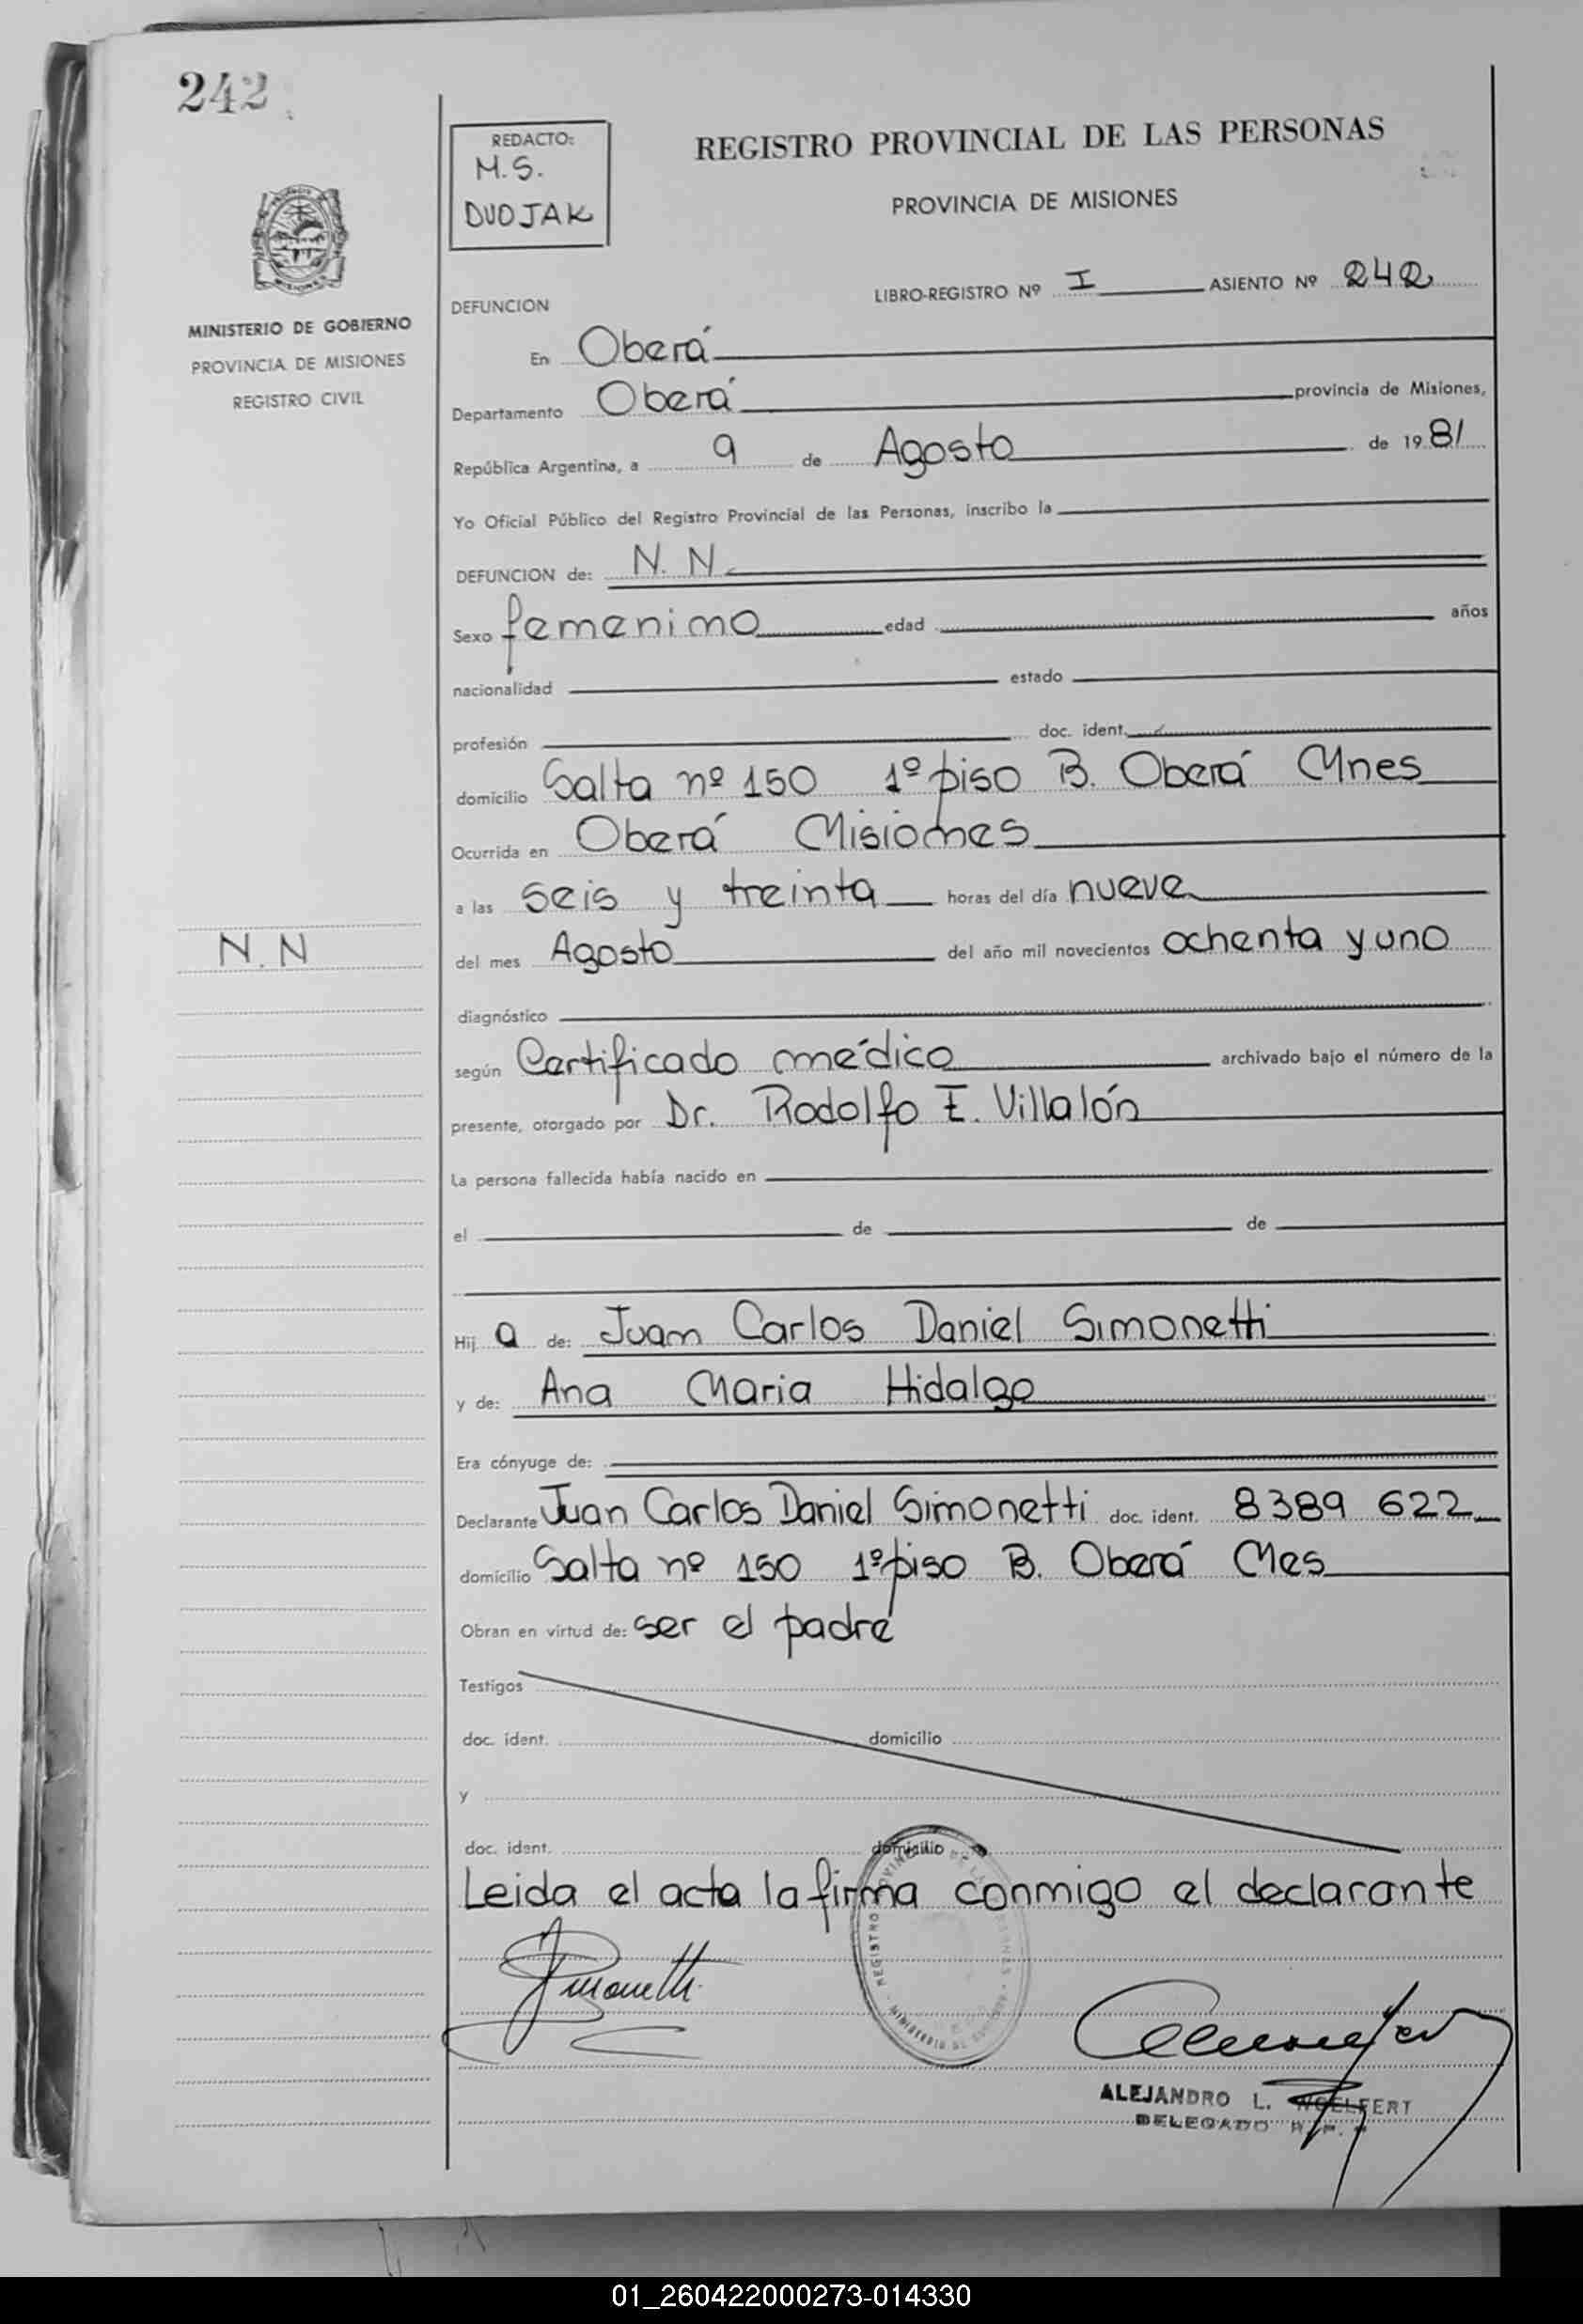 242
REDACTO:
M.S.
DUOJAK
REGISTRO PROVINCIAL DE LAS PERSONAS
PROVINCIA DE MISIONES
MINISTERIO DE GOBIERNO
PROVINCIA DE MISIONES
REGISTRO CIVIL
DEFUNCION
LIBRO-REGISTRO Nº I ASIENTO Nº 242
En Oberá
Departamento Oberá provincia de Misiones,
República Argentina, a 9 de Agosto de 1981
Yo Oficial Público del Registro Provincial de las Personas, inscribo la
DEFUNCION de: N. N.
Sexo femenino edad años
nacionalidad estado
profesión doc. ident.
domicilio Salta nº 150 1º piso B. Oberá Mnes
Ocurrida en Oberá Misiones
a las seis y treinta horas del día nueve
N.N
del mes Agosto del año mil novecientos ochenta y uno
diagnóstico
según Certificado médico archivado bajo el número de la
presente, otorgado por Dr. Rodolfo E. Villalón
La persona fallecida había nacido en
el de de
Hij a de: Juan Carlos Daniel Simonetti
y de: Ana Maria Hidalgo
Era cónyuge de:
Declarante Juan Carlos Daniel Simonetti doc. ident. 8389 622
domicilio Salta nº 150 1º piso B. Oberá Mes
Obran en virtud de: ser el padre
Testigos
doc. ident. domicilio
y
doc. ident. domicilio
Leida el acta la firma conmigo el declarante
Simonetti
ALEJANDRO L. WOELFERT
DELEGADO R. P.
01_260422000273-014330